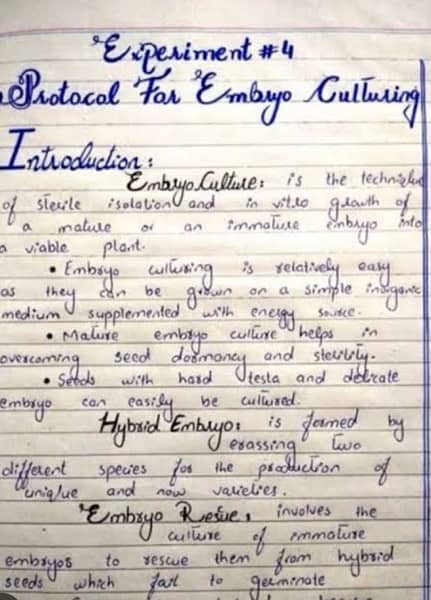 Experiment #4
Protocol For Embryo Culturing
Introduction:
Embryo Culture: is the technique
of sterile isolation and in vitro growth of
a mature or an immature embryo into
a viable plant.
• Embryo culturing is relatively easy
as they can be grown on a simple inorganic
medium supplemented with energy source.
• Mature embryo culture helps in
overcoming seed dormancy and sterility.
• Seeds with hard testa and delicate
embryo can easily be cultured.
Hybrid Embryo: is formed by
crassing two
different species for the production of
uniqlue and now varieties.
Embryo Resue, involves the
culture of immature
embryos to rescue them from hybrid
seeds which fail to germinate